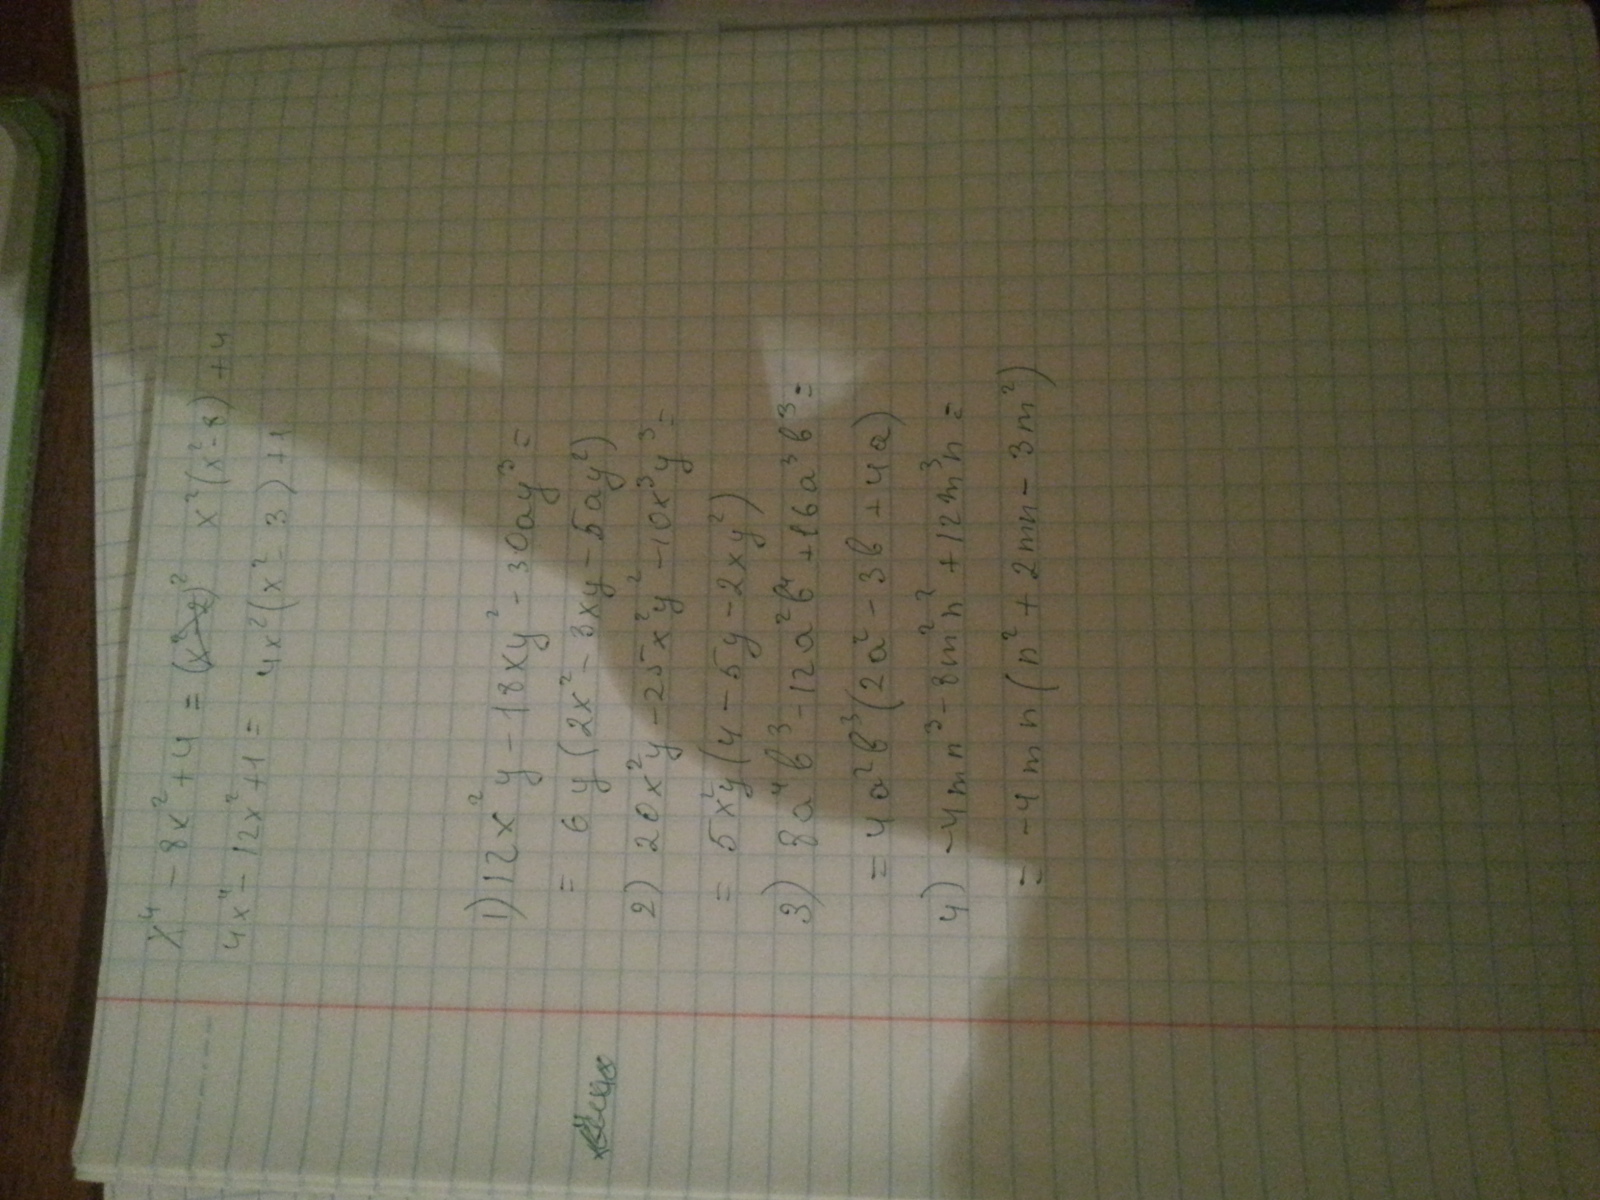 x⁴ - 8x² + 4 = (x² x)² x²(x²-8)+4
4x⁴ - 12x² + 1 = 4x²(x² - 3) + 1
1) 12x²y - 18xy² - 30ay³ =
= 6y(2x² - 3xy - 5ay²)
2) 20x²y - 25x²y² - 10x³y³ =
= 5x²y(4 - 5y - 2xy²)
3) 8a⁴b³ - 12a²b⁴ + 16a³b³ =
= 4a²b³(2a² - 3b + 4a)
4) -4mn³ - 8m²n² + 12m³n =
= -4mn(n² + 2mn - 3m²)